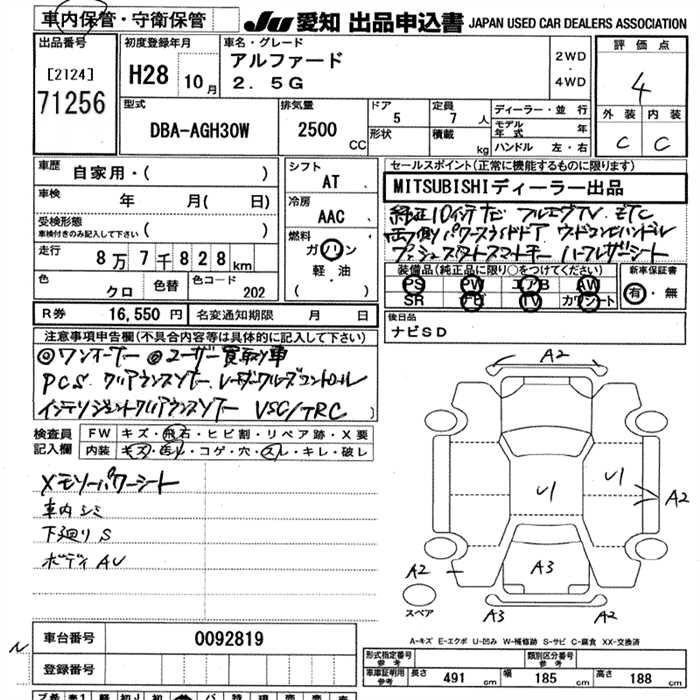 車内保管・守衛保管
JU 愛知 出品申込書 JAPAN USED CAR DEALERS ASSOCIATION
出品番号
[2124]
71256
初度登録年月
H28 10月
車名・グレード
アルファード
2.5G
2WD
・
4WD
評価点
4
外装 内装
C C
型式
DBA-AGH30W
排気量
2500 CC
ドア
5
形状
定員
7 人
積載
kg
ディーラー・並行
モデル年式 年
ハンドル 左・右
車歴
自家用・( )
車検
年 月( 日)
受検形態
車検付きのみ記入して下さい ( )
走行
8万7千828km
色
クロ
色替
色コード
202
シフト
AT
冷房
AAC
燃料
ガソリン
軽・油
( )
セールスポイント(正常に機能するものに限ります)
MITSUBISHIディーラー出品
純正10インチナビ フルセグTV ETC
両側パワースライドドア ウッドコンビハンドル
プッシュスタートスマートキー ハーフレザーシート
装備品(純正品に限り○をつけてください)
PS PW エアB AW
SR ナビ TV カワシート
新車保証書
有・無
R券 16,550円
名変通知期限 月 日
後日品
ナビSD
注意事項申告欄(不具合内容等は具体的に記入して下さい)
◎ワンオーナー ◎ユーザー買取り車
PCS. クリアランスソナー. レーダークルーズコントロール
インテリジェントクリアランスソナー VSC/TRC
検査員
記入欄
FW キズ・飛石・ヒビ割・リペア跡・X要
内装 キズ・汚レ・コゲ・穴・スレ・キレ・破レ
メモリーパワーシート
車内シミ
下廻りS
ボディAU
A2
U1
U1
A2
A3
A2
A2
スペア
A3
A2
A-キズ E-エクボ U-凹み W-補修跡 S-サビ C-腐食 XX-交換済
N
車台番号
0092819
登録番号
形式指定番号
参考
類別区分番号
参考
車庫証明用
参考
長さ 491 cm
幅 185 cm
高さ 188 cm